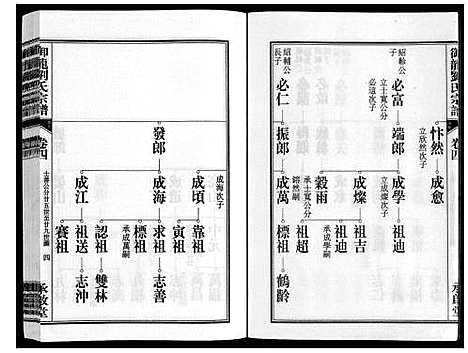 御龍劉氏宗譜
卷四
忭然
立欣然次子
成愈
紹榜公次子
必富
立士寬公
必逵次子
端郎
成學
立成燦次子
祖迪
成燦
祖吉
承成學嗣
祖迪
穀雨
承士寬公分
鎔然嗣
祖超
紹輔公長子
必仁
振郎
成萬
標祖
鶴齡
承啟堂
成海次子
成頃
靠祖
寅祖
發郎
成海
求祖
志善
承成萬嗣
標祖
認祖
雙林
成江
祖送
志沖
賽祖
御龍劉氏宗譜
卷四
士壽公分廿五世至廿九世圖
四
承啟堂